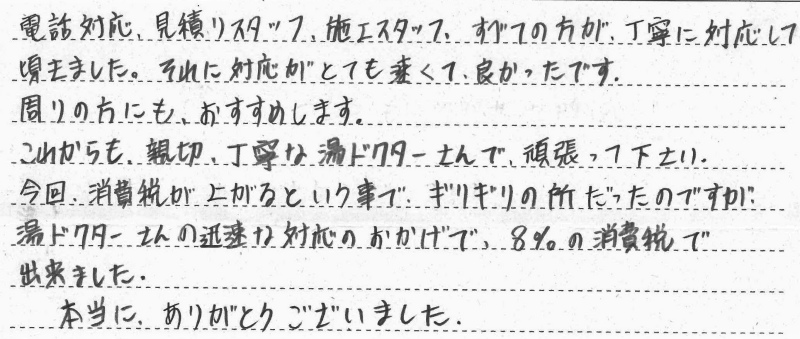 電話対応、見積りスタッフ、施工スタッフ、すべての方が、丁寧に対応して
頂きました。それに対応がとても速くて、良かったです。
周りの方にも、おすすめします。
これからも、親切、丁寧な湯ドクターさんで、頑張って下さい。
今回、消費税が上がるという事で、ギリギリの所だったのですが、
湯ドクターさんの迅速な対応のおかげで、8%の消費税で
出来ました。
本当に、ありがとうございました。